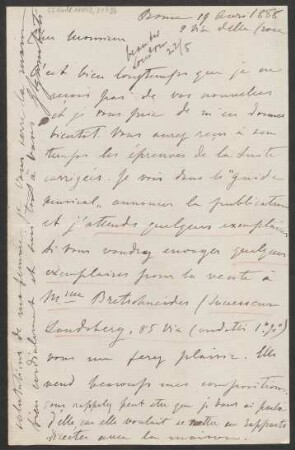 Rome 19 avril 1888
9 via della Croce
Cher Monsieur
C'est bien longtemps que je ne
reçois pas de vos nouvelles
et je vous prie de m'en donner
bientôt. Vous aurez reçu à son
temps les épreuves de la Suite
corrigées. Je vois dans le "Guide
musical" annoncer la publication
et j'attends quelques exemplaires
Si vous voudrez envoyer quelques
exemplaires pour la vente à
Mme Bretschneider (Successeur
Landsberg, 85 Via Condotti 1º pº)
vous me ferez plaisir. Elle
vend beaucoup mes compositions.
Vous rappelez peut être que je vous ai parlé
d'elle car elle voulait se mettre en rapports
directes avec la maison.
salutations de ma femme je vous serre la main
bien cordialement et suis tout à vous